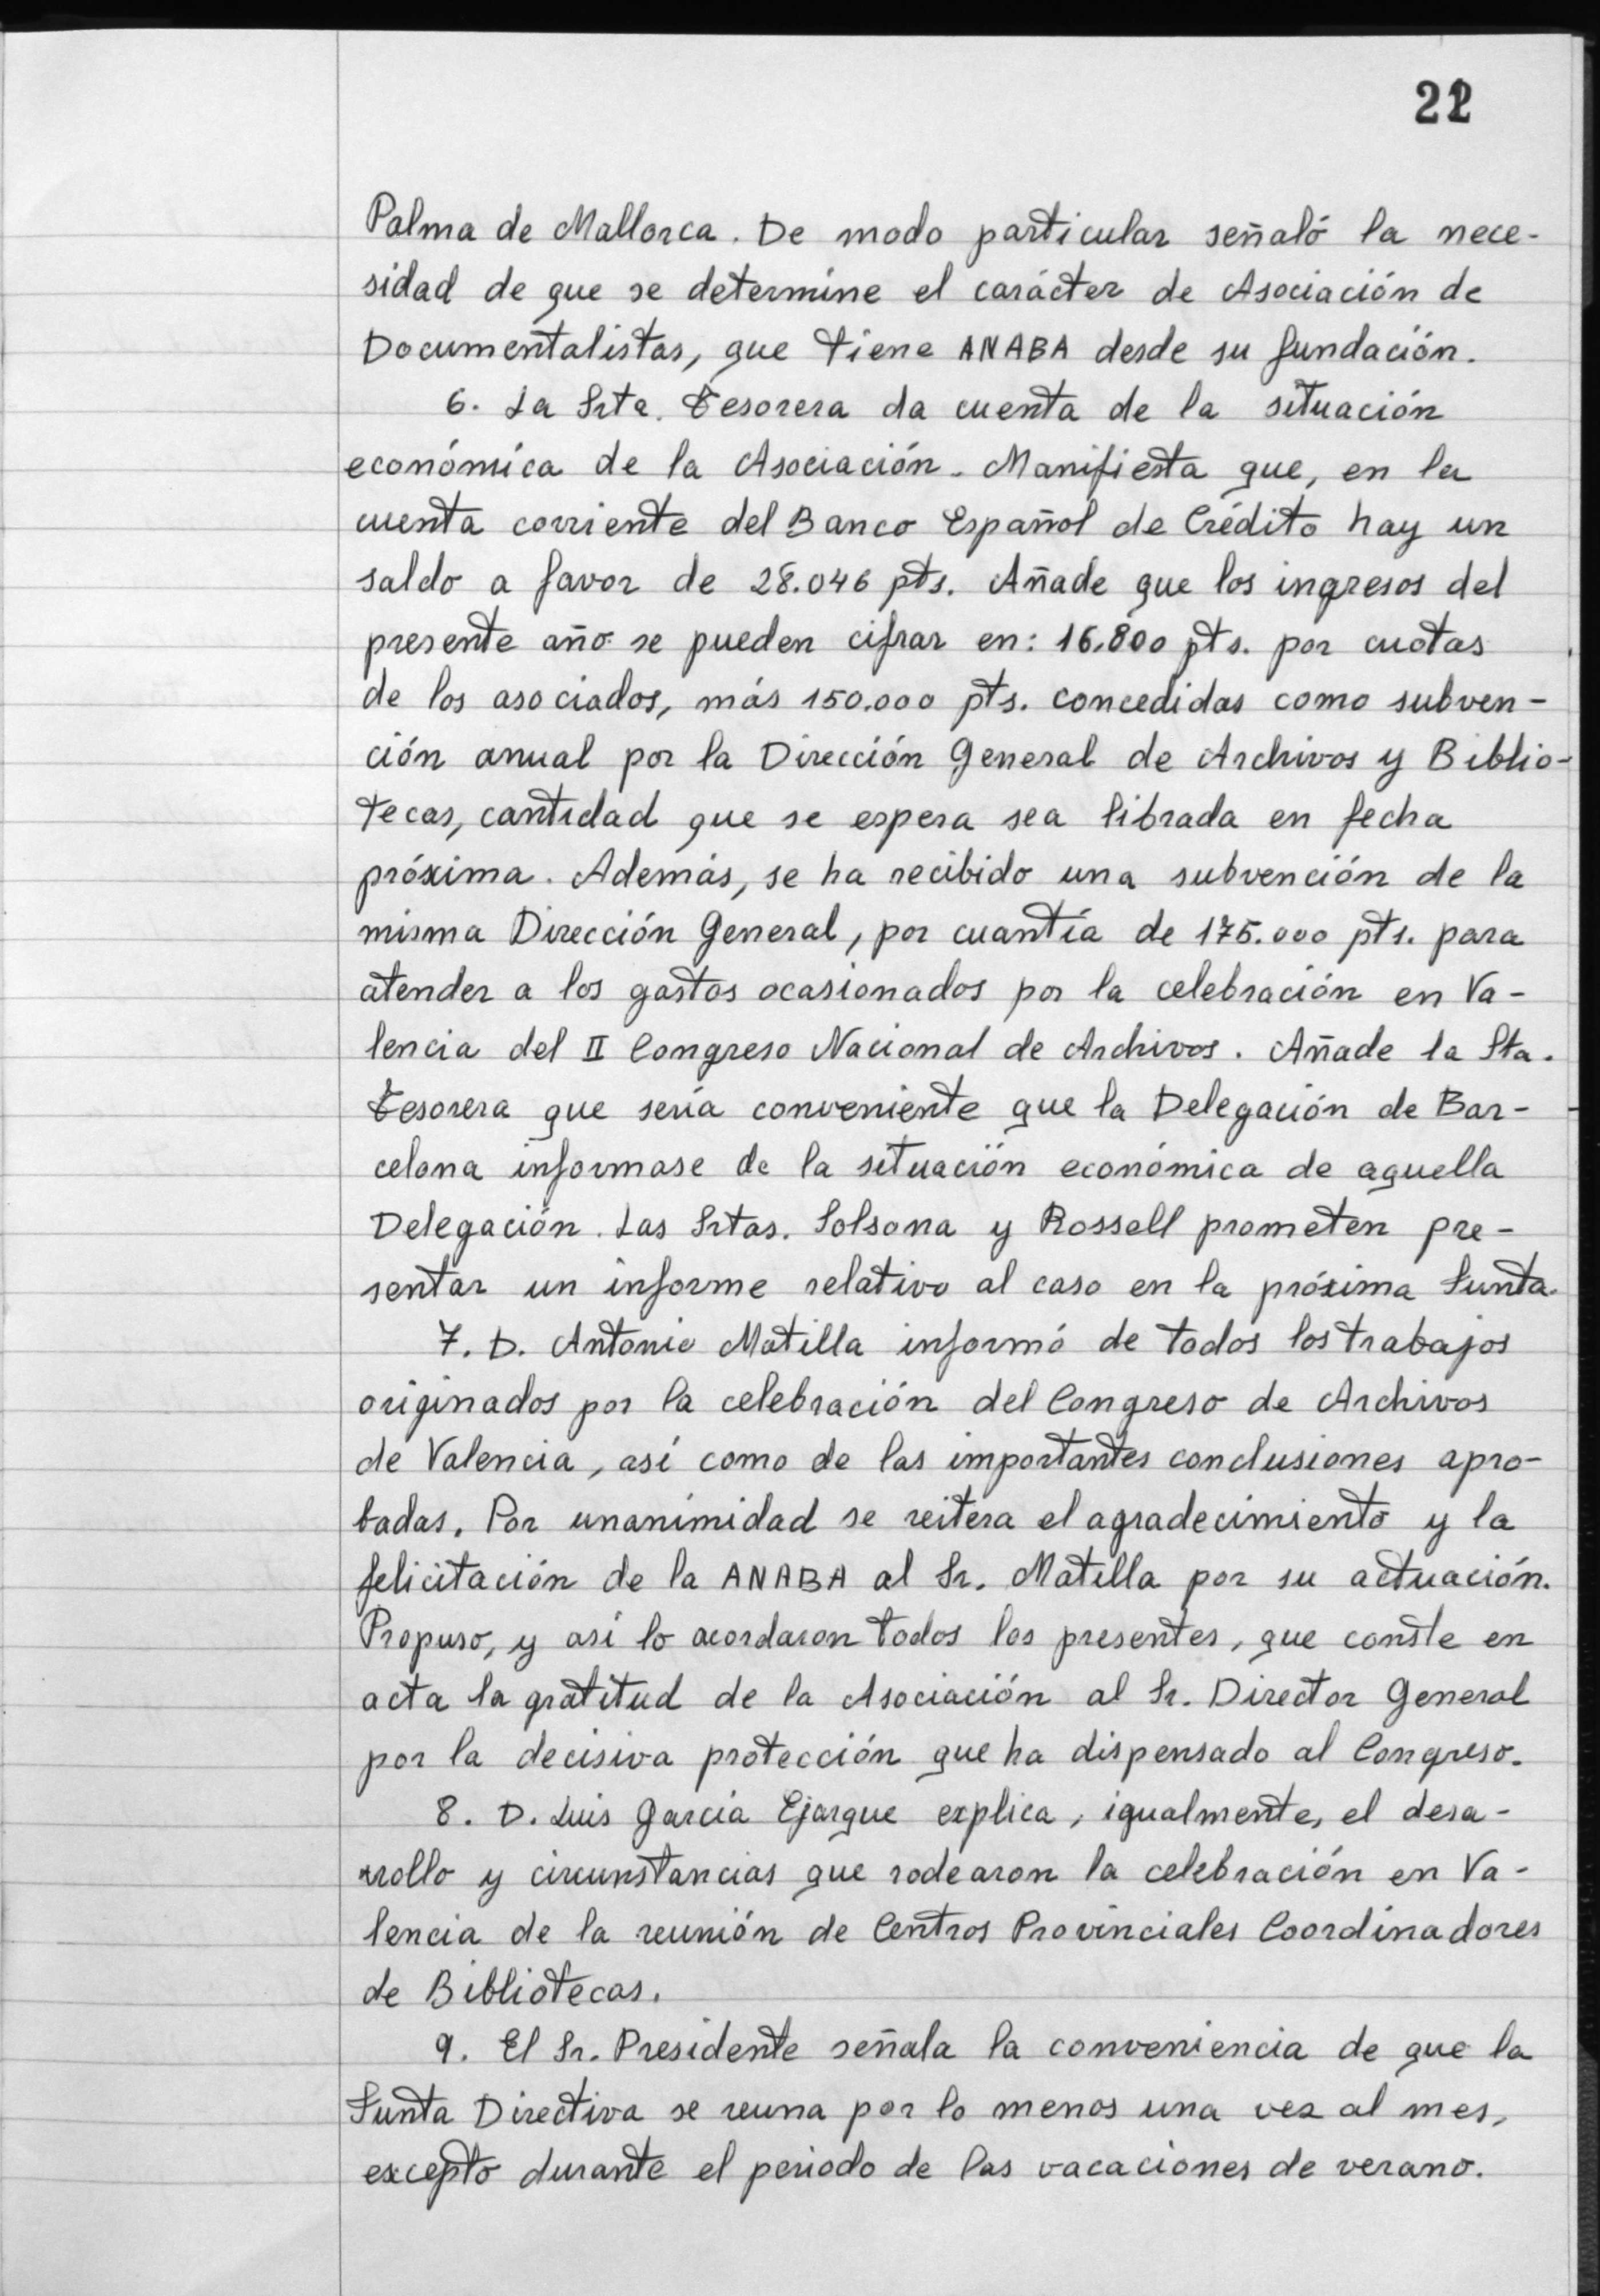 22
Palma de Mallorca. De modo particular señaló la nece-
sidad de que se determine el carácter de Asociación de
Documentalistas, que tiene ANABA desde su fundación.
6. La Srta. Tesorera da cuenta de la situación
económica de la Asociación. Manifiesta que, en la
cuenta corriente del Banco Español de Crédito hay un
saldo a favor de 28.046 pts. Añade que los ingresos del
presente año se pueden cifrar en: 16.800 pts. por cuotas
de los asociados, más 150.000 pts. concedidas como subven-
ción anual por la Dirección General de Archivos y Biblio-
tecas, cantidad que se espera sea librada en fecha
próxima. Además, se ha recibido una subvención de la
misma Dirección General, por cuantía de 175.000 pts. para
atender a los gastos ocasionados por la celebración en Va-
lencia del II Congreso Nacional de Archivos. Añade la Sta.
Tesorera que sería conveniente que la Delegación de Bar-
celona informase de la situación económica de aquella
Delegación. Las Srtas. Solsona y Rossell prometen pre-
sentar un informe relativo al caso en la próxima Junta.
7. D. Antonio Matilla informó de todos los trabajos
originados por la celebración del Congreso de Archivos
de Valencia, así como de las importantes conclusiones apro-
badas. Por unanimidad se reitera el agradecimiento y la
felicitación de la ANABA al Sr. Matilla por su actuación.
Propuso, y así lo acordaron todos los presentes, que conste en
acta la gratitud de la Asociación al Sr. Director General
por la decisiva protección que ha dispensado al Congreso.
8. D. Luis García Ejarque explica, igualmente, el desa-
rrollo y circunstancias que rodearon la celebración en Va-
lencia de la reunión de Centros Provinciales Coordinadores
de Bibliotecas.
9. El Sr. Presidente señala la conveniencia de que la
Junta Directiva se reuna por lo menos una vez al mes,
excepto durante el periodo de las vacaciones de verano.